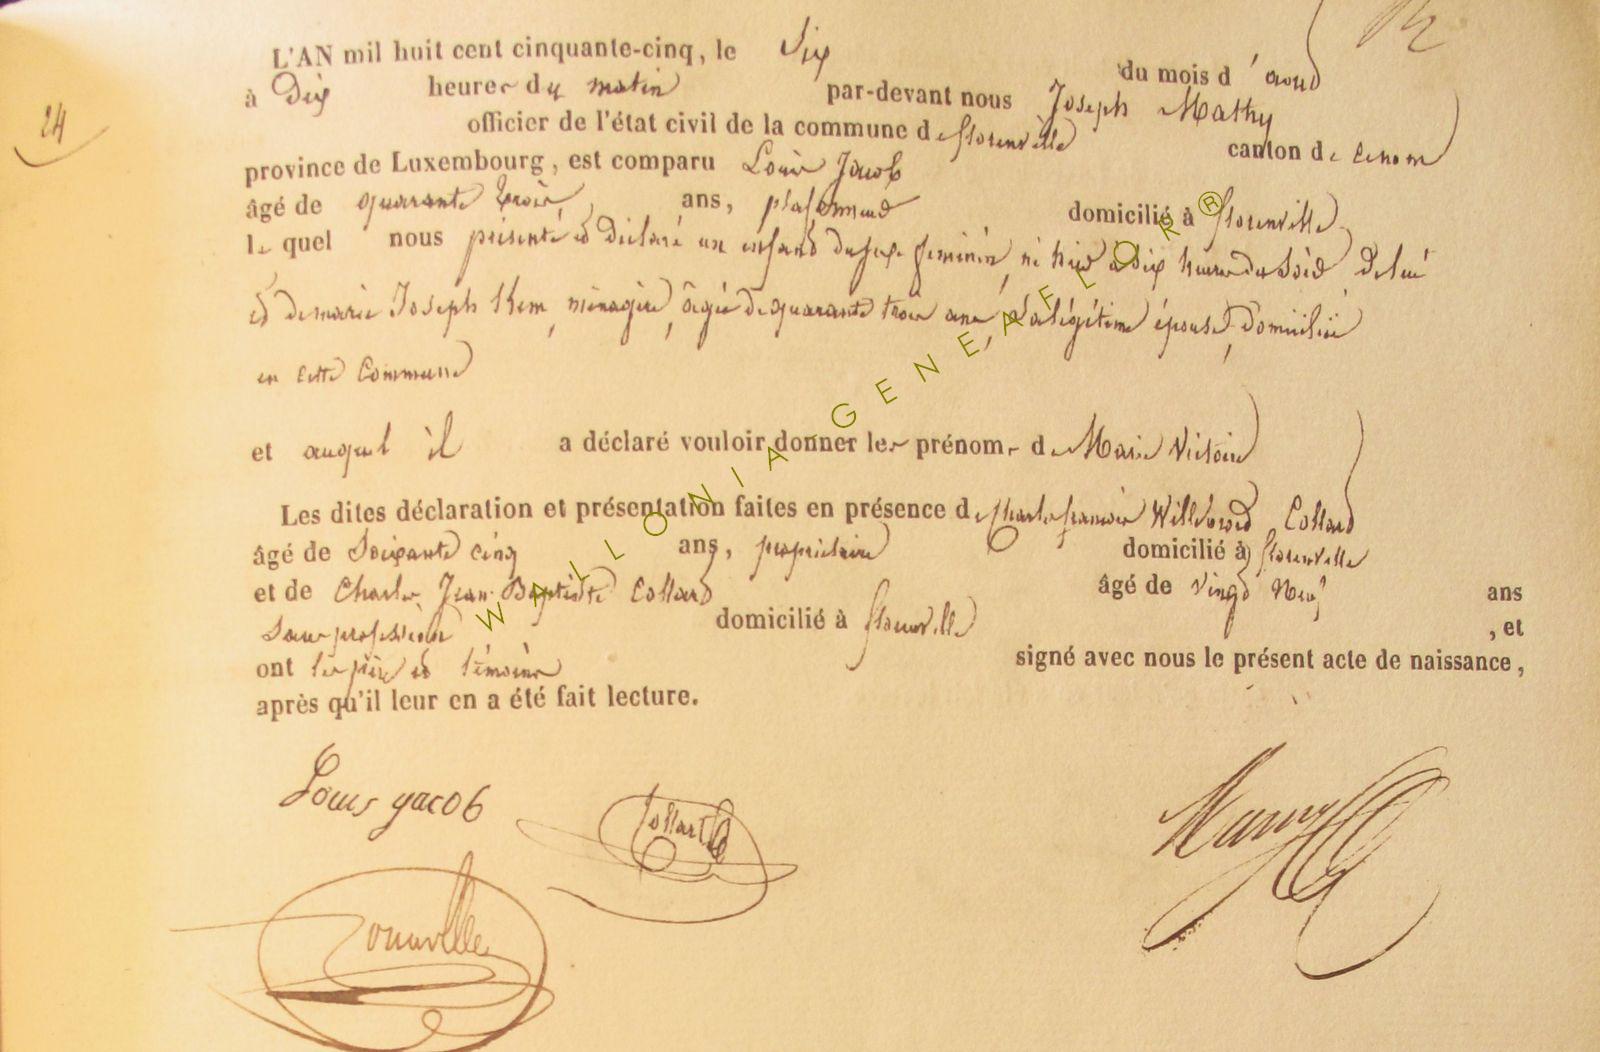 24
L'AN mil huit cent cinquante-cinq, le Six du mois d'aout
à Dix heures du matin par-devant nous Joseph Mathy
officier de l'état civil de la commune de florenville canton de cenom
province de Luxembourg, est comparu Louis Jacob
âgé de quarante trois ans, plafonneur domicilié à florenville
lequel nous présente et déclaré un enfant du sexe feminin, né hier à dix heures du Soir De lui
et de marie Joseph Kem, ménagère, âgée de quarante trois ans, sa légitime épouse, domiciliée
en cette Commune
et auquel il a déclaré vouloir donner les prénoms de Marie Victoire
Les dites déclaration et présentation faites en présence de Charles françois Willebrord Collard
âgé de Soixante cinq ans, propriétaire domicilié à florenville
et de Charles Jean-Baptiste Collard âgé de vingt Neuf ans
Sans profession domicilié à florenville, et
ont les père et témoins signé avec nous le présent acte de naissance,
après qu'il leur en a été fait lecture.
Louis yacob
Collard
WALLONIA GENEAFLOR®